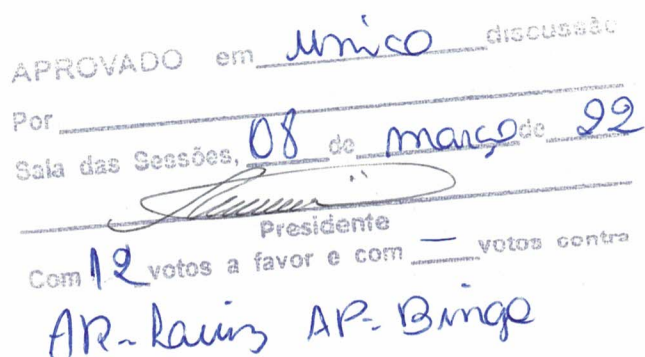 APROVADO em único discussão
Por
Sala das Sessões, 08 de março de 22
Presidente
Com 12 votos a favor e com — votos contra
AP- Bingo